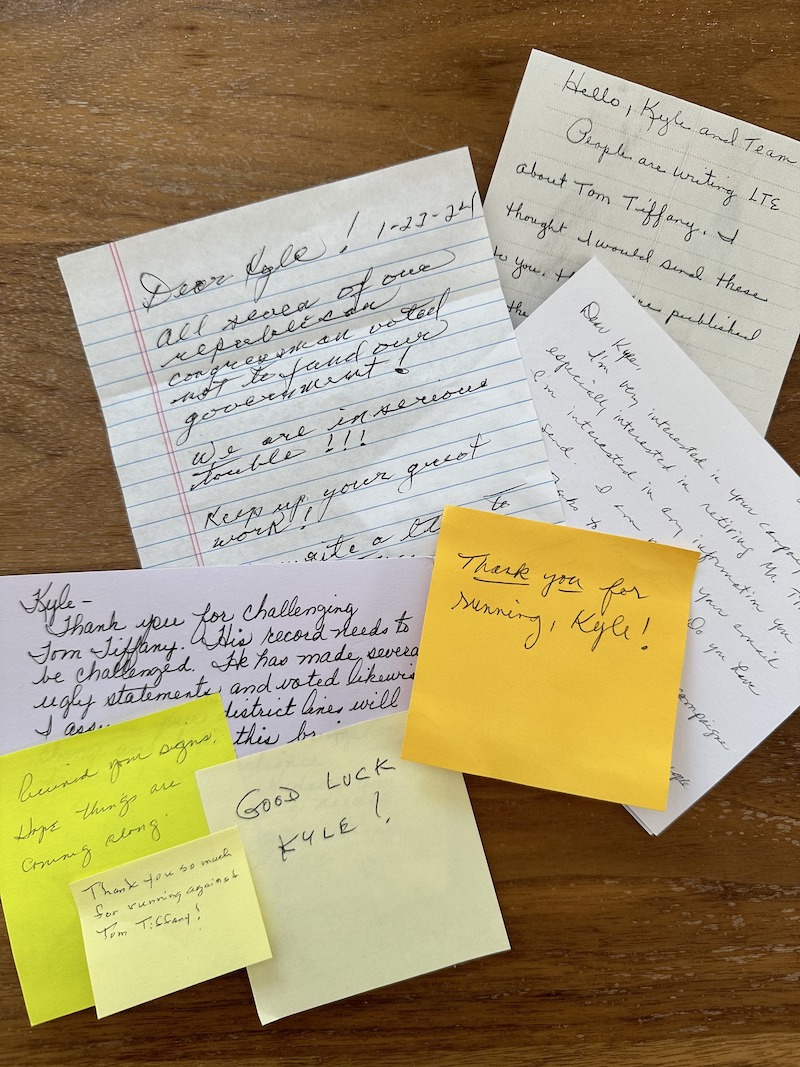 Hello, Kyle and Team
People are writing LTE
about Tom Tiffany. I
thought I would send these
to you.
published
the
Dear Kyle! 1-23-24
All seven of our
republican
congressman voted
not to fund our
government!
We are in serious
trouble!!!
Keep up your great
work!
to
write a
Dear Kyle,
I'm very interested in your campaign
especially interested in retiring Mr.
I'm interested in any information you
send. I am
to your email
Do you have
campaign
Thank you for
running, Kyle!
Kyle-
Thank you for challenging
Tom Tiffany. His record needs to
be challenged. He has made several
ugly statements and voted likewise
I district lines will
this
your signs.
Hope things are
coming along.
GOOD LUCK
KYLE!
Thank you so much
for running against
Tom Tiffany!